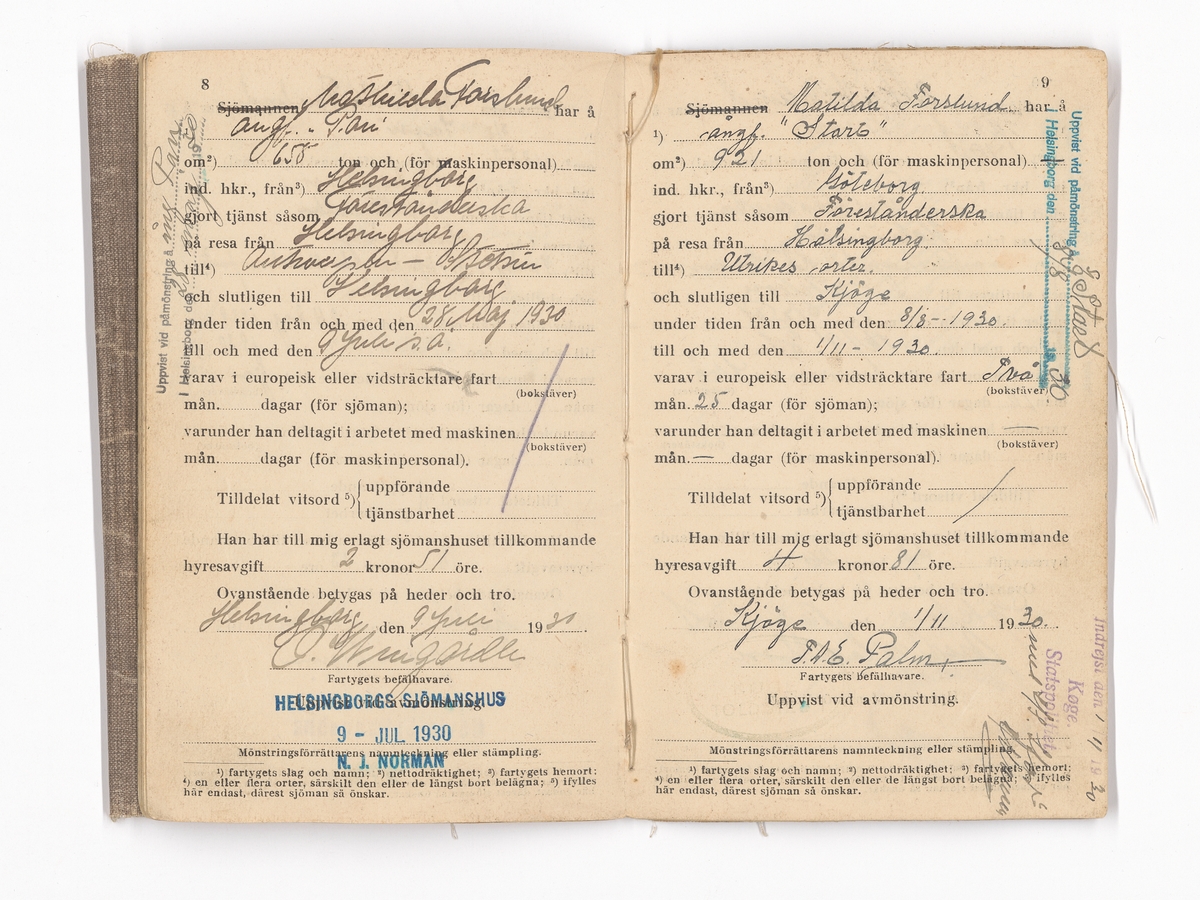 8
Sjömannen Mathilda Forslund har å
ångf. "Pan"
om²) 658 ton och (för maskinpersonal)
ind. hkr., från³) Helsingborg
gjort tjänst såsom Föreståndarska
på resa från Helsingborg
till⁴)
och slutligen till Helsingborg
under tiden från och med den 28 Maj 1930
till och med den 9 Juli s.å.
varav i europeisk eller vidsträcktare fart
(bokstäver)
mån. dagar (för sjöman);
varunder han deltagit i arbetet med maskinen
(bokstäver)
mån. dagar (för maskinpersonal).
Tilldelat vitsord ⁵) uppförande
tjänstbarhet
Han har till mig erlagt sjömanshuset tillkommande
hyresavgift 2 kronor 51 öre.
Ovanstående betygas på heder och tro.
Helsingborg den 9 Juli 1930
Fartygets befälhavare.
Uppvist vid avmönstring.
HELSINGBORGS SJÖMANSHUS
9 - JUL 1930
N. J. NORMAN
Mönstringsförrättarens namnteckning eller stämpling.
¹) fartygets slag och namn; ²) nettodräktighet; ³) fartygets hemort;
⁴) en eller flera orter, särskilt den eller de längst bort belägna; ⁵) ifylles
här endast, därest sjöman så önskar.
Uppvist vid påmönstring å ång. Pan
i Helsingborg den 19
9
Sjömannen Matilda Forslund har å
¹) ångf. "Starb"
om²) 921 ton och (för maskinpersonal) —
ind. hkr., från³) Göteborg
gjort tjänst såsom Förestånderska
på resa från Hälsingborg
till⁴) Utrikes orter.
och slutligen till Kjöge
under tiden från och med den 8/8 - 1930.
till och med den 1/11 - 1930.
varav i europeisk eller vidsträcktare fart Två
(bokstäver)
mån. 25 dagar (för sjöman);
varunder han deltagit i arbetet med maskinen —
(bokstäver)
mån. — dagar (för maskinpersonal).
Tilldelat vitsord ⁵) uppförande
tjänstbarhet
Han har till mig erlagt sjömanshuset tillkommande
hyresavgift 4 kronor 81 öre.
Ovanstående betygas på heder och tro.
Kjöge den 1/11 1930.
F.A.E. Palm
Fartygets befälhavare.
Uppvist vid avmönstring.
Mönstringsförrättarens namnteckning eller stämpling.
¹) fartygets slag och namn; ²) nettodräktighet; ³) fartygets hemort;
⁴) en eller flera orter, särskilt den eller de längst bort belägna; ⁵) ifylles
här endast, därest sjöman så önskar.
Uppvist vid påmönstring å
i Helsingborg den 8/8 1930
Indrejst den 1/11 1930
Køge.
Statspolitiet